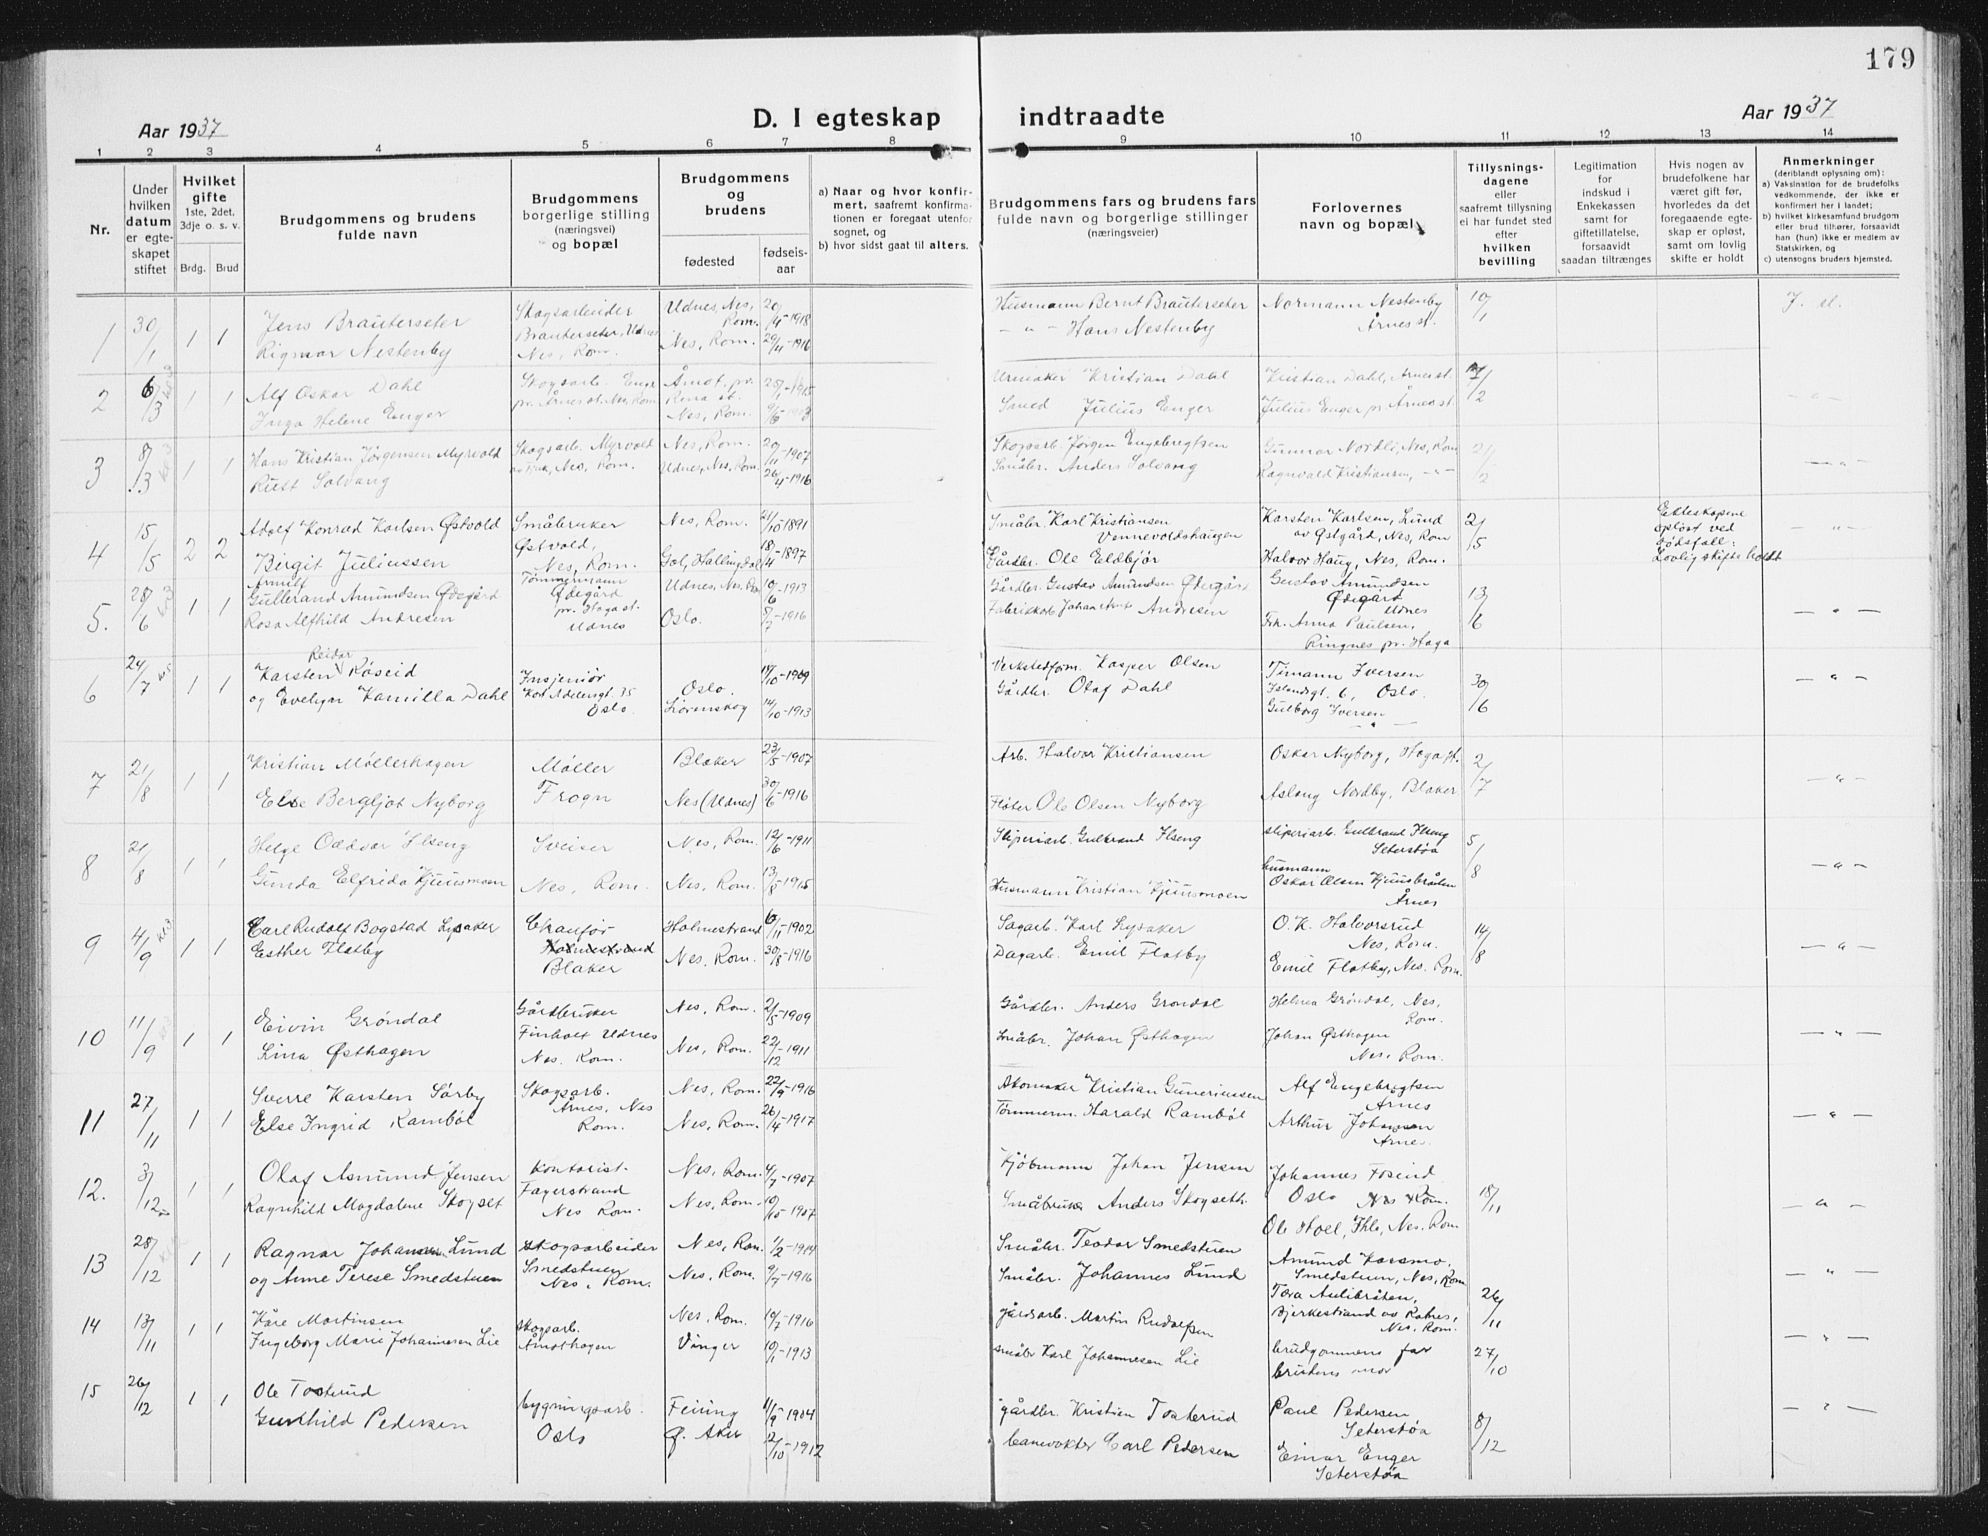 179
Aar 1937 D. I egteskap indtraadte Aar 1937
1 2 3 4 5 6 7 8 9 10 11 12 13 14
Nr.
Under hvilken datum er egteskapet stiftet
Hvilket gifte 1ste, 2det, 3dje o. s. v.
Brdg. Brud
Brudgommens og brudens fulde navn
Brudgommens borgerlige stilling (næringsvei) og bopæl
Brudgommens og brudens
fødested fødselsaar
a) Naar og hvor konfirmert, saafremt konfirmationen er foregaat utenfor sognet, og
b) hvor sidst gaat til alters.
Brudgommens fars og brudens fars fulde navn og borgerlige stillinger (næringsveier)
Forlovernes navn og bopæl
Tillysningsdagene eller saafremt tillysning ei har fundet sted efter hvilken bevilling
Legitimation for indskud i Enkekassen samt for giftetillatelse, forsaavidt saadan tiltrænges
Hvis nogen av brudefolkene har været gift før, hvorledes da det foregaaende egteskap er opløst, samt om lovlig skifte er holdt
Anmerkninger (deriblandt oplysning om):
a) Vaksination for de brudefolks vedkommende, der ikke er konfirmert her i landet;
b) hvilket kirkesamfund brudgom eller brud tilhører, forsaavidt han (hun) ikke er medlem av Statskirken, og
c) utensogns bruders hjemsted.
1 30/1 1 1 Jens Brauterseter Skogsarbeider Udnes, Nes, Rom. 20/4-1918 Husmann Bernt Brauterseter Normann Nestenby 10/1 J. el.
Rigmor Nestenby Brauterseter, Udnes Nes, Rom. Nes, Rom. 29/4-1916 - " - Hans Nestenby Årnes st.
2 6/3 1 1 Alf Oskar Dahl Skogsarb. Enger Åmot, pr. Rena st. 1915 Urmaker Kristian Dahl Kristian Dahl, Årnes st. /2 - " -
Inga Helene Enger pr. Årnes st. Nes, Rom Nes, Rom. Smed Julius Enger Julius Enger pr. Årnes st.
3 8/3 kl 3 1 1 Hans Kristian Jörgensen Myrvold Skogsarb. Myrvold Nes, Rom. 1907 Skogsarb. Jørgen Engebregtsen Gunnar Nordli, Nes, Rom 21/2 - " -
Rut Solvang Nes, Rom. Udnes, Nes, Rom. 26/4-1916 Småbr. Anders Solvang Ragnvald Kristiansen, - " -
4 15/5 2 2 Adolf Konrad Karlsen Østvold Småbruker Nes, Rom. 21/10-1891 Småbr. Karl Kristiansen Vennevoldshaugen Karsten Karlsen, Lund av Østgård, Nes, Rom 2/5 Ekteskapene opløst ved dødsfall: Lovlig skifte holdt - " -
Birgit Juliussen Østvold, Nes, Rom. Gol, Hallingdal 18/4-1897 Gårdbr. Ole Eldbjør Halvor Haug, Nes, Rom.
5. 28/6 kl 3 1 1 Arnulf Gullerand Amundsen Ødegård Tömmermann Udnes, Nes, Rom 10/6-1913 Gårdbr. Gustav Amundsen Ødegård Gustav Amundsen Ødegård Udnes 13/6 - " -
Rosa Alfhild Andresen Ødegård pr. Haga st. Udnes Oslo. 8/7-1916 Fabrikkarb. Johan Andresen Frk. Anna Paulsen, Ringnes pr. Haga
6 24/7 kl 5 1 1 Karsten Reidar Røseid Insjeniør Oslo. 14/10-1909 Verkstedform. Kasper Olsen Timann Iversen 30/6 - " -
og Evelyn Kamilla Dahl Kort Adelersgt. 35 Oslo. Lörenskog 14/10-1913 Gårdbr. Olaf Dahl Islandsgt. 6, Oslo. Gulborg Iversen - " -
7 21/8 1 1 Kristian Møllerhagen Møller Blaker 23/5-1907 Arb. Halvor Kristiansen Oskar Nyborg, Haga st. 2/7 - " -
Else Bergljot Nyborg Frogn Nes (Udnes) 30/6-1916 Fløter Ole Olsen Nyborg Aslaug Nordby, Blaker
8 21/8 1 1 Helge Oddvar Ilseng Sveiser Nes, Rom. 12/6-1911 Sliperiarb. Gulbrand Ilseng sliperiarb. Gulbrand Ilseng Seterstøa 5/8 - " -
Gunda Elfrida Kjuusmoen Nes, Rom. Nes, Rom. 13/5-1915 Husmann Kristian Kjuusmoen husmann Oskar Olsen Kjuusbråten Årnes
9 4/9 kl 3 1 1 Carl Rudolf Bogstad Lysaker Chaufør Holmestrand 6/11-1902 Sagarb. Karl Lysaker O. K. Halvorsrud Nes, Rom. 14/8 - " -
Esther Flatby Holmestrand Blaker Nes. Rom. 30/8-1916 Dagarb. Emil Flatby Emil Flatby, Nes. Rom.
10 11/9 kl 3 1 1 Eivin Grøndal Gårdbruker Nes, Rom. 2/5-1909 Gårdbr. Anders Grøndal Helma Grøndal, Nes, Rom. - " -
Lina Østhagen Finholt Udnes Nes. Rom. Nes, Rom. 22/12-1911 Småbr. Johan Østhagen Johan Østhagen Nes, Rom.
11 27/11 1 1 Sverre Karsten Sörby Skogsarb. Nes, Rom. 22/9-1916 Skomaker Kristian Guneriussen Alf Engebregtsen Årnes - " -
Else Ingrid Rambøl Årnes, Nes Rom. Nes, Rom. 26/4-1917 Tömmerm. Harald Rambøl Arthur Johansen Årnes.
12. 3/12 1 1 Olaf Asmund Jensen Kontorist Nes, Rom. 4/7-1907 Kjøbmann Johan Jensen Johannes Foseid Oslo Nes Rom. 18/11 - " -
Ragnhild Magdalene Skogset Fagerstrand Nes Rom. Nes, Rom. 10/10-1907 Småbruker Anders Skogseth. Ole Hoel, Ihle, Nes. Rom
13 28/12 1 1 Ragnar Johansen Lund Skogsarbeider Nes, Rom. 1/2-1914 Småbr. Teodor Smedstuen Amund Korsmo. Smedstuen, Nes, Rom 26/11 - " -
og Anne Terese Smedstuen Smedstuen Nes, Rom. Nes, Rom. 9/7-1916 Småbr. Johannes Lund Tora Aulibråten, Bjerkestrand av Rotnes, Nes, Rom.
14 13/11 1 1 Kåre Martinsen skogsarb. Nes, Rom. 14/7-1916 gårdsarb. Martin Rudolfsen brudgommens far 27/10 - " -
Ingeborg Marie Johannesen Lie Åmothagen Vinger 10/1-1913 småbr Karl Johannesen Lie brudens mor
15 26/12 1 1 Ole Tosterud bygningsarb. Feiring 11/9-1904 gårdbr. Kristian Tosterud Paul Pedersen Seterstøa 8/12 - " -
Gunhild Pedersen Oslo Ø. Aker 2/10-1912 banevokter Carl Pedersen Einar Enger Seterstøa